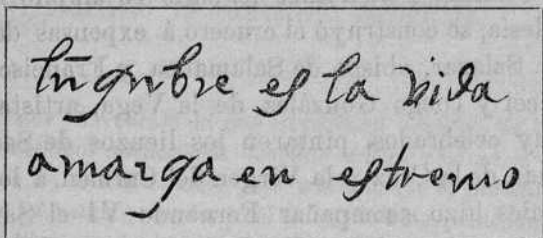 lúgubre es la vida
amarga en estremo